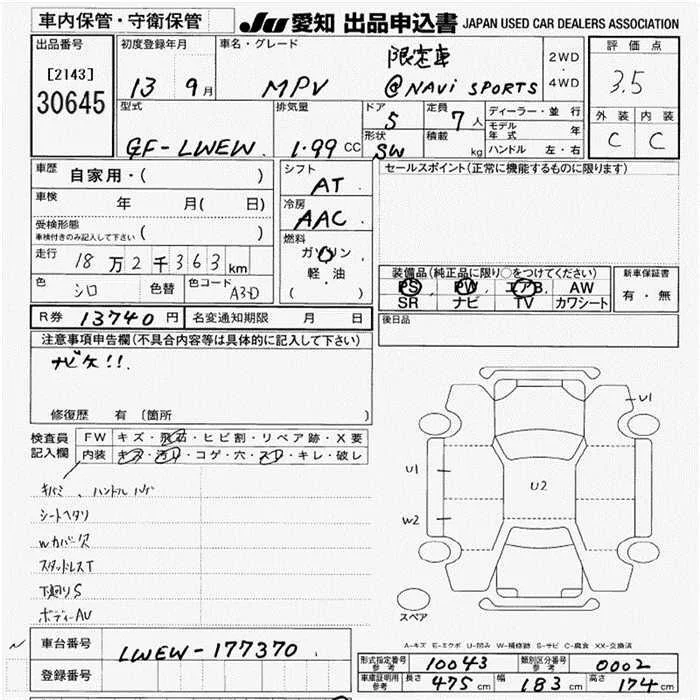 車内保管・守衛保管
JU 愛知 出品申込書 JAPAN USED CAR DEALERS ASSOCIATION
出品番号
[2143]
30645
初度登録年月
13 9月
車名・グレード
限定車
MPV @NAVi SPORTS
2WD
・
4WD
評価点
3.5
外装 内装
C C
型式
GF-LWEW
排気量
1.99 CC
ドア
5
形状
SW
定員
7人
積載
kg
ディーラー・並行
モデル年式 年
ハンドル 左・右
車歴
自家用・( )
車検 年 月( 日)
受検形態
車検付きのみ記入して下さい ( )
走行 18万2千363km
色 シロ 色替 色コード A3D
シフト
AT
冷房
AAC
燃料
ガソリン
軽・油
( )
セールスポイント(正常に機能するものに限ります)
装備品(純正品に限り○をつけてください)
PS PW エアB AW
SR ナビ TV カワシート
新車保証書
有・無
R券 13740円 名変通知期限 月 日
後日品
注意事項申告欄(不具合内容等は具体的に記入して下さい)
ナビ欠!!
修復歴 有 〔箇所 〕
検査員
記入欄
FW キズ・飛石・ヒビ割・リペア跡・X要
内装 キズ・汚れ・コゲ・穴・スレ・キレ・破レ
キバミ、ハンドルハゲ
シートヘタリ
Wカバー欠
スタッドレスT
下廻りS
ボディーAU
U1
U1
U2
W2
スペア
A-キズ E-エクボ U-凹み W-補修跡 S-サビ C-腐食 XX-交換済
車台番号 LWEW-177370
登録番号
形式指定番号 参考 10043 類別区分番号 参考 0002
車庫証明用 参考 長さ 475cm 幅 183cm 高さ 174cm